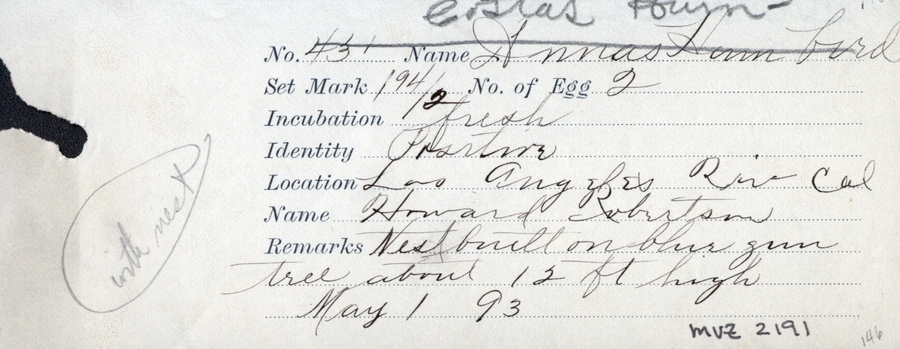 Costas Humn-
No. 431 Name Annas Humm bird
Set Mark 194/2 No. of Egg 2
Incubation fresh
Identity Positive
Location Los Angeles Riv Cal
Name Howard Robertson
Remarks Nest built on blue gum
tree about 12 ft high
May 1 93
with nest
MVZ 2191
146